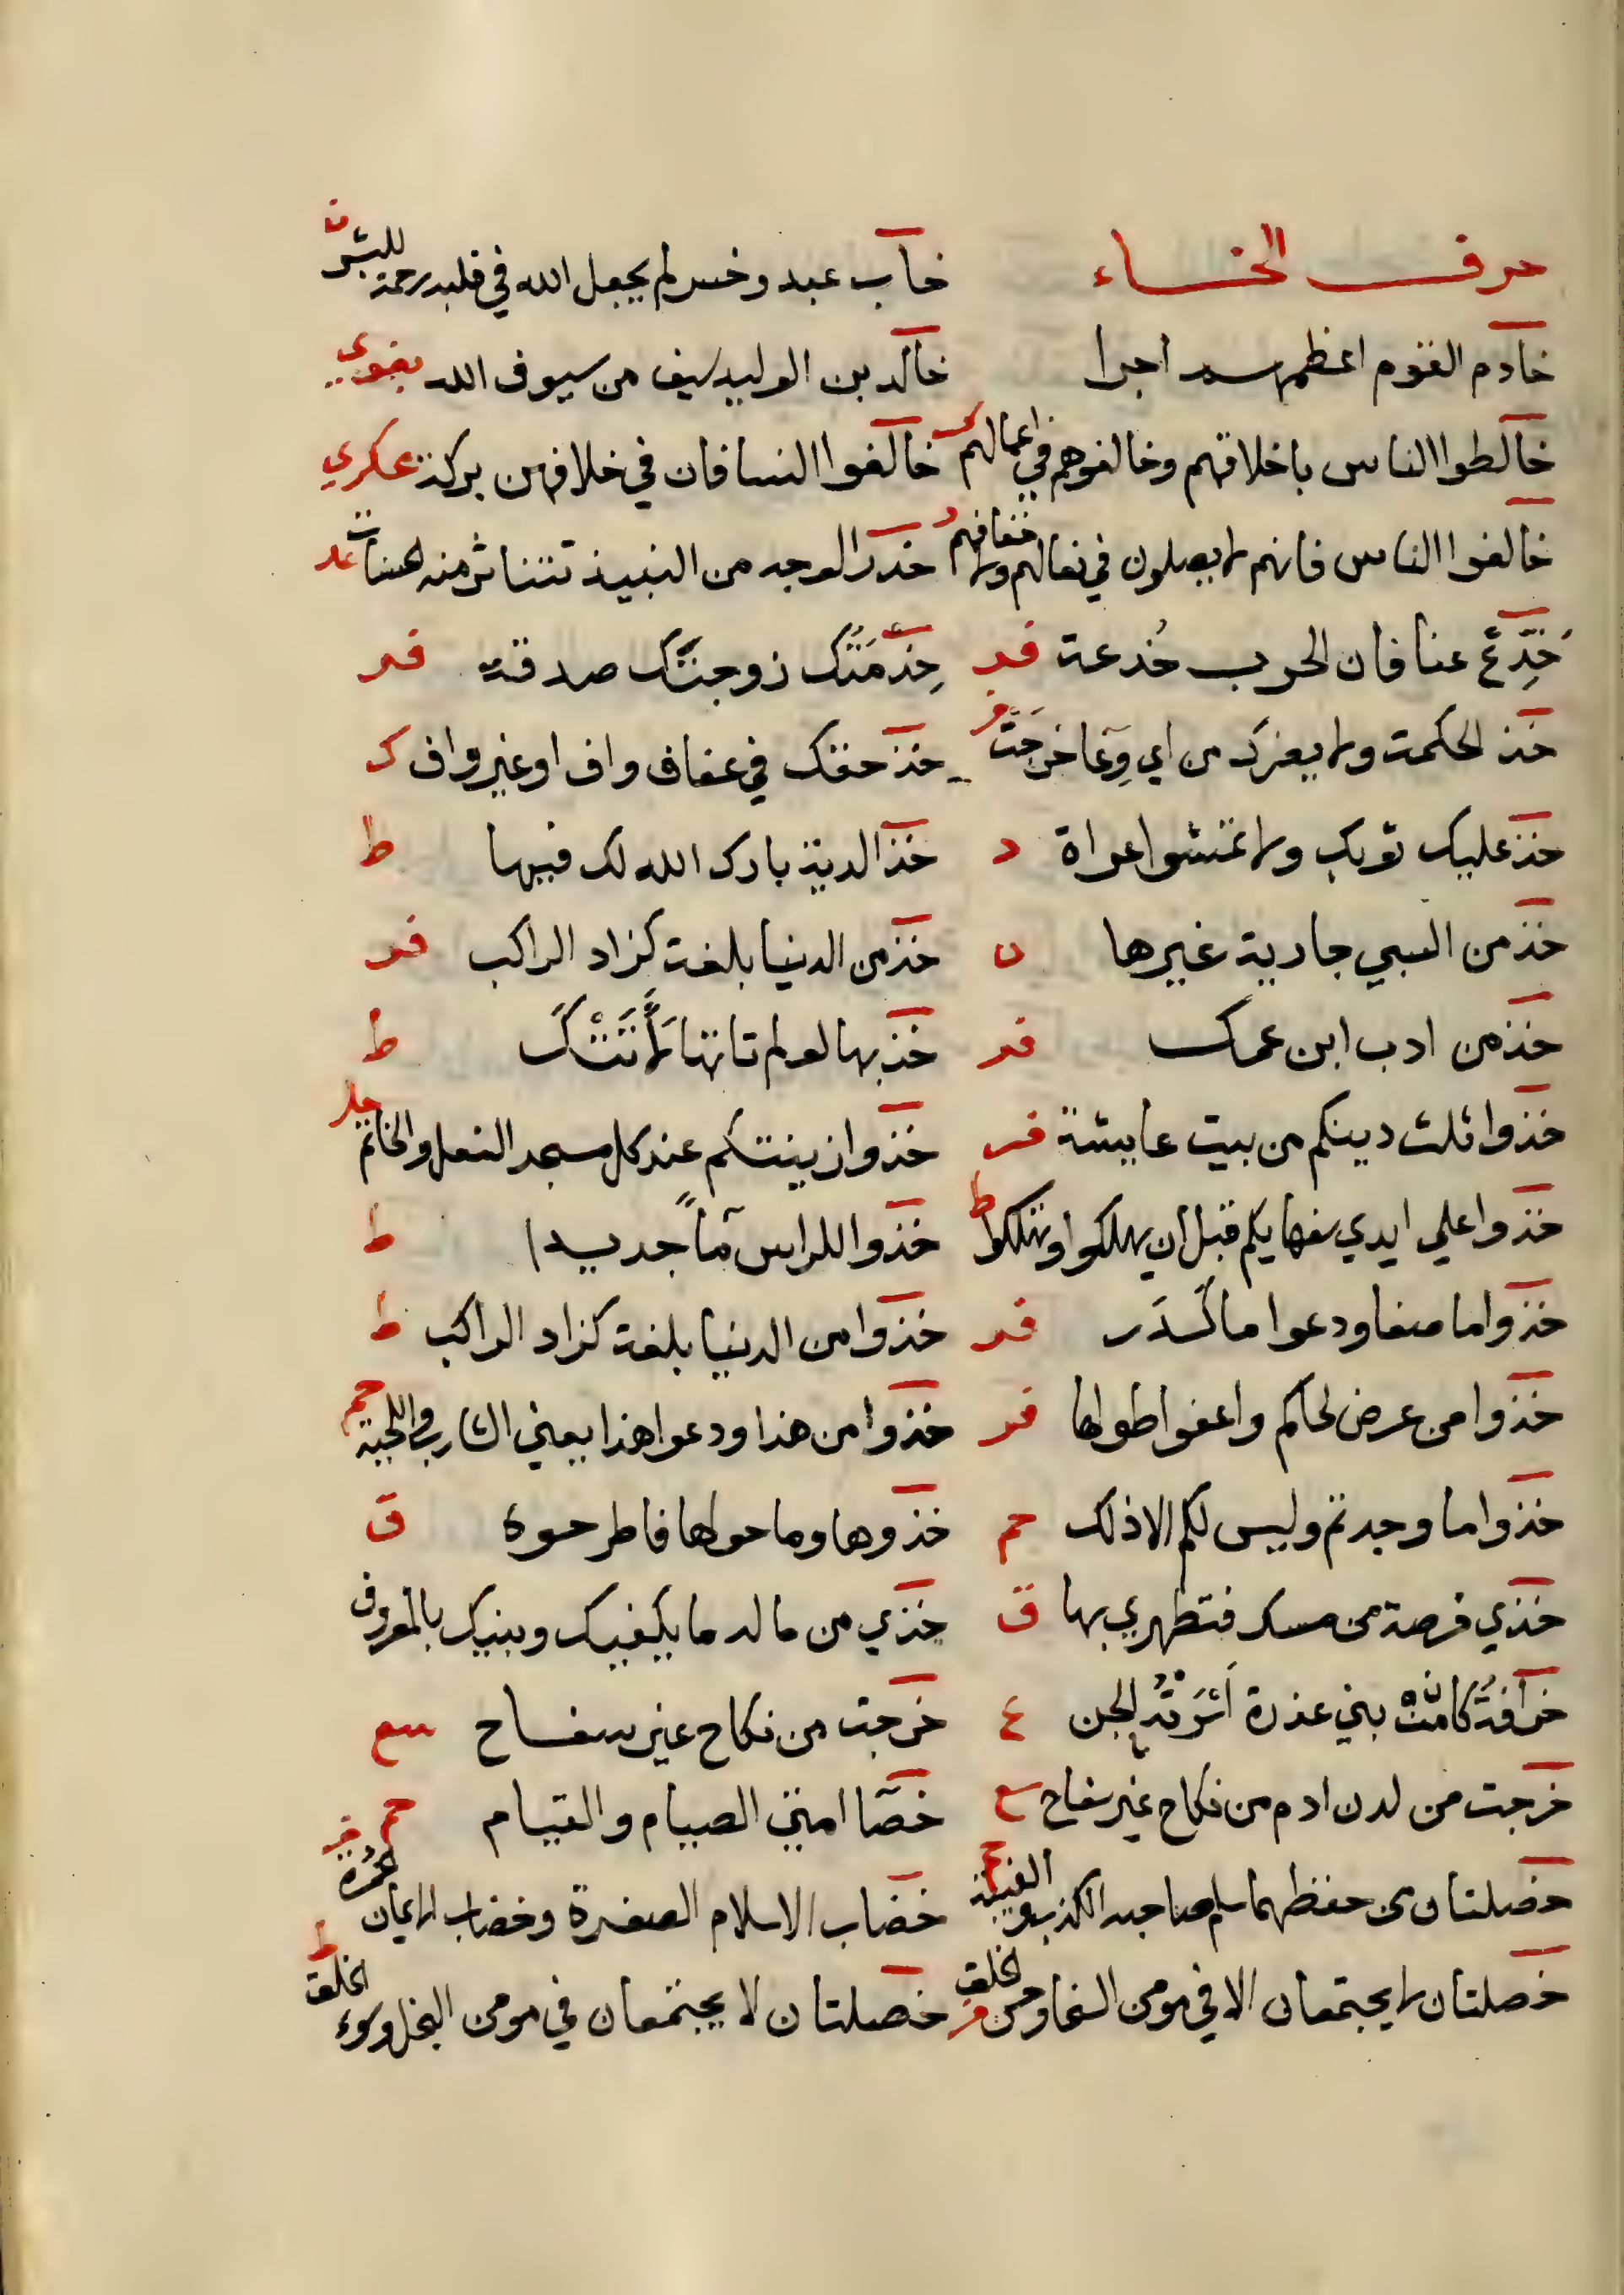 حرف الخاء
خاب عبد وخسر لم يجعل الله في قلبه رحمة للبشر
خادم القوم اعظمهم اجرا
خالد بن الوليد سيف من سيوف الله بغوي
خالطوا الناس باخلاقهم وخالفوهم في اعمالهم ك
خالفوا النسا فان في خلافهن بركة عكري
خالفوا الناس فانهم لا يصلون في نعالهم ولا خفافهم د
خدر الوجه من النبيذ تتناثر منه الحسنات عد
خَدِّعْ عنا فان الحرب خُدعة فر
خِدْمَتُك زوجتَك صدقة فر
خذ الحكمة ولا يعزك من اي وِعا خرجَتْ فر
خذ حقك في عفاف واف او غير واف ك
خذ عليك ثوبك ولا تمشوا عراة د
خذ الدية بارك الله لك فيها ط
خذ من السبي جارية غيرها ن
خذ من الدنيا بلغة كزاد الراكب فر
خذ من ادب ابن عمك فر
خذ بها لو لم تاتها لَأَتَتْكَ ط
خذوا ثلث دينكم من بيت عايشة فر
خذوا زينتكم عند كل مسجد النعل والخاتم
خذوا علي ايدي سفهايكم قبل ان يهلكوا وتهلكوا ط
خذوا للراس مآً جديدا ط
خذوا ما صفا ودعوا ما كَدَر فر
خذوا من الدنيا بلغة كزاد الراكب ط
خذوا من عرض لحاكم واعفوا طولها فر
خذوا من هذا ودعوا هذا يعني الشارب واللحية حم
خذوا ما وجدتم وليس لكم الا ذلك حم
خذوها وما حولها فاطرحوه ق
خذي فرصة من مسك فتطهري بها ق
خذي من ماله ما يكفيك وبنيك بالمعروف
خرافة كانت بني عذرة اَسَرَتْه الجن ع
خرجت من نكاح غير سفاح سع
خرجت من لدن ادم من نكاح غير سفاح سع
خصا امتي الصيام والقيام حم
خصلتان من حفظهما سلم صاحبه الكذب والغيبة
خضاب الاسلام الصفرة وخضاب الايمان الحمرة فر
خصلتان لا يجتمعان الا في مومن السخا وحسن الخلق فر
خصلتان لا يجتمعان في مومن البخل وسوء الخلق ط